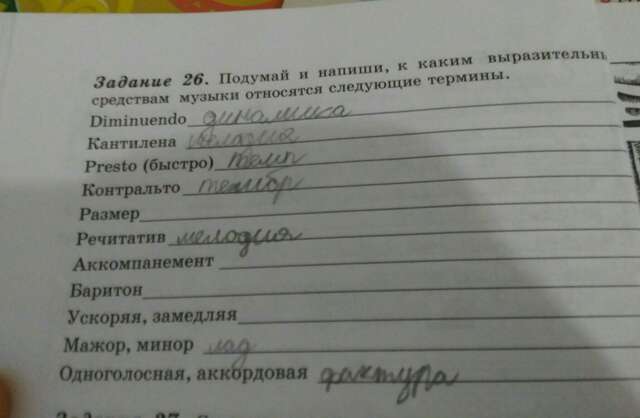 Задание 26. Подумай и напиши, к каким выразительны
средствам музыки относятся следующие термины.
Diminuendo динамика
Кантилена мелодия
Presto (быстро) темп
Контральто тембр
Размер
Речитатив мелодия
Аккомпанемент
Баритон
Ускоряя, замедляя
Мажор, минор лад
Одноголосная, аккордовая фактура